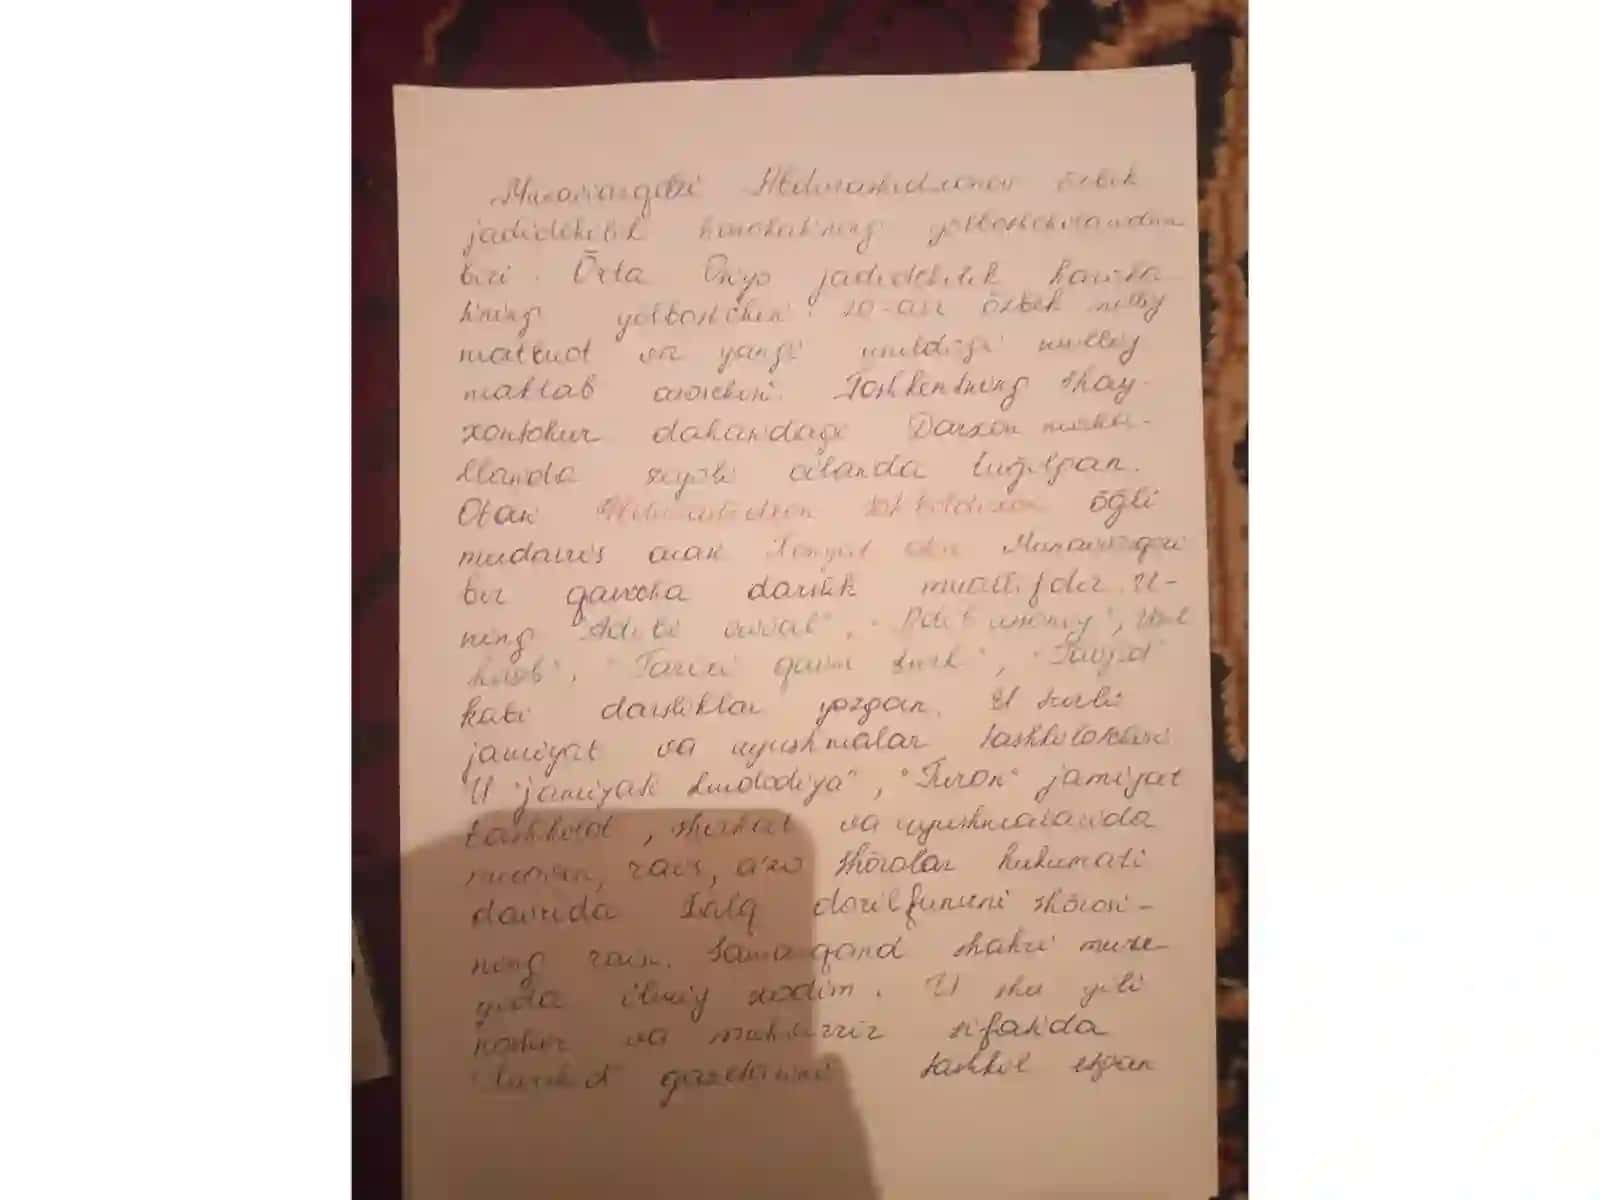 Munavvarqori Abdurashidxonov õzbek
jadidchilik harakatining yõlboshchilaridan
biri. Õrta Osiyo jadidchilik haraka-
tining yõlboshchisi. 20-asr õzbek milliy
matbuot va yangi usuldagi milliy
maktab asoschisi. Toshkentning Shay-
xontohur dahasidagi Darxon maha-
llasida ziyoli oilasida tuğilgan.
Otasi Abdurashidxon õğli
mudarris onasi Xosiyat otin Munavvarqori
bir qancha darslik muallifidir. U-
ning "Adibi avval", "Adibi soniy", Usul
hisob", "Tarixi qavmi turk", "Tajvid"
kabi darsliklar yozgan. U turli
jamiyat va uyushmalar tashkilotchisi
U "jamiyati Imdodiya", "Turon" jamiyat
tashkilot, shirkat va uyushmalarida
muassis, rais, a'zo Shõrolar hukumati
davrida Xalq dorilfununi shõrosi-
ning raisi. Samarqand shahri muze-
yida ilmiy xodim. U shu yili
noshir va muharrir sifatida
"Xurshid" gazetasini tashkil etgan